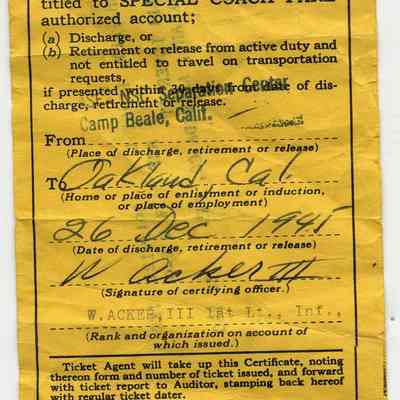 titled to SPECIAL COACH FARE
authorized account;
(a) Discharge, or
(b) Retirement or release from active duty and
not entitled to travel on transportation
requests,
if presented within 30 days from date of dis-
charge, retirement or release.
Separation Center
Camp Beale, Calif.
From
(Place of discharge, retirement or release)
To Oakland, Cal
(Home or place of enlistment or induction,
or place of employment)
26 Dec 1945
(Date of discharge, retirement or release)
W Acker III
(Signature of certifying officer.)
W.ACKER,III 1st Lt., Inf.,
(Rank and organization on account of
which issued.)
Ticket Agent will take up this Certificate, noting
thereon form and number of ticket issued, and forward
with ticket report to Auditor, stamping back hereof
with regular ticket dater.